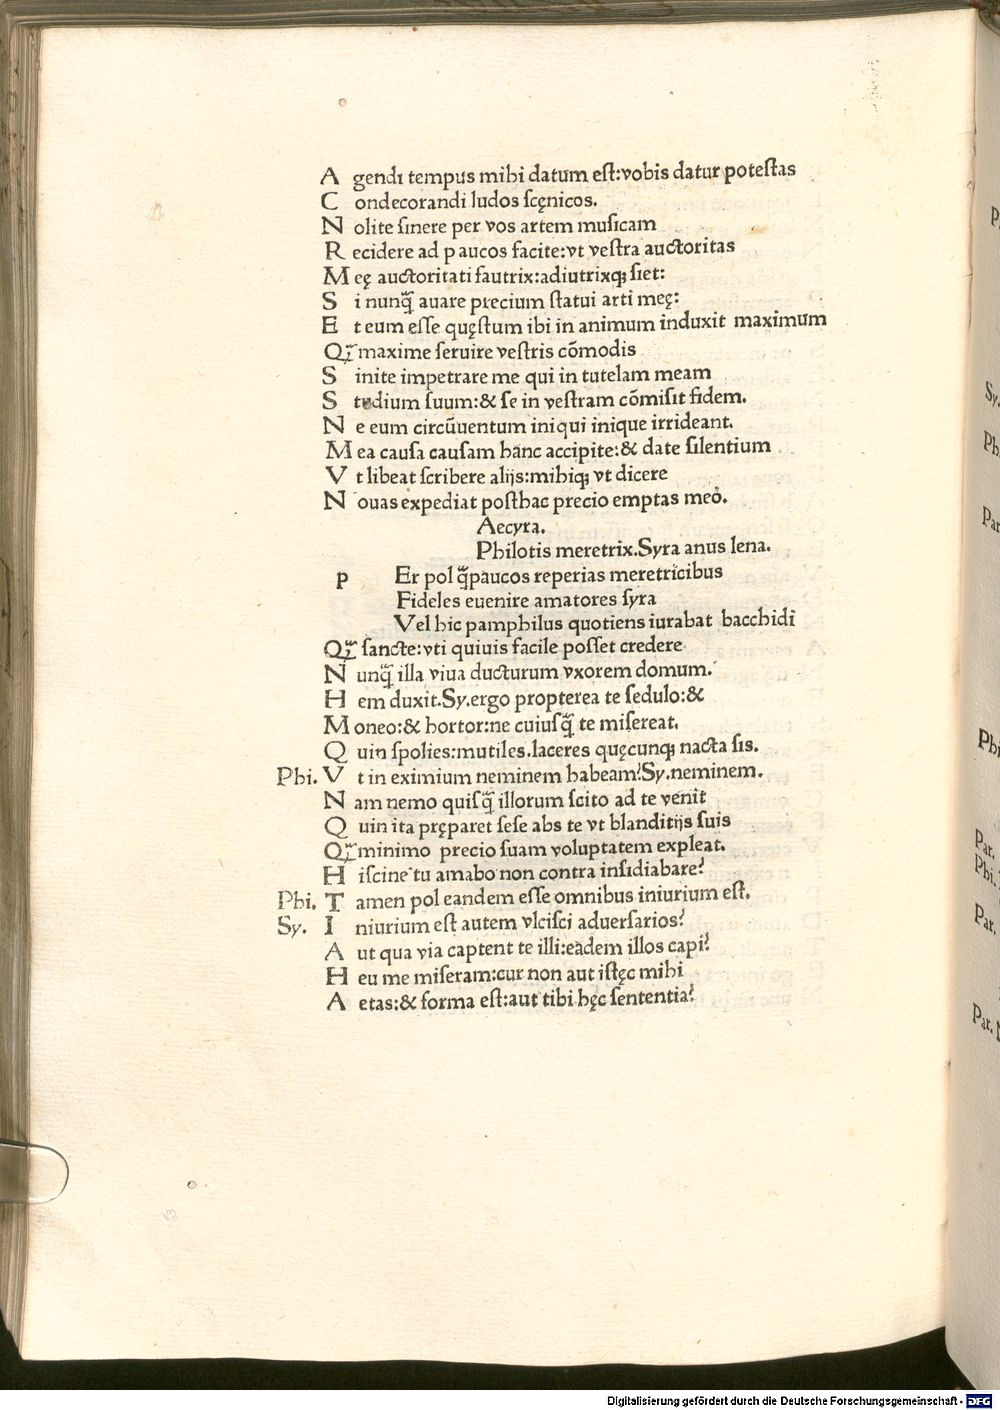 A gendi tempus mihi datum est:vobis datur potestas
C ondecorandi ludos scęnicos.
N olite sinere per vos artem musicam
R ecidere ad paucos facite:vt vestra auctoritas
M eę auctoritati fautrix:adiutrixqꝫ siet:
S i nunq̃ auare precium statui arti meę:
E t eum esse quęstum ibi in animum induxit maximum
Q̃ maxime seruire vestris cōmodis
S inite impetrare me qui in tutelam meam
S tudium suum:& se in vestram cōmisit fidem.
N e eum circūuentum iniqui inique irrideant.
M ea causa causam hanc accipite:& date silentium
V t libeat scribere alijs:mihiqꝫ vt dicere
N ouas expediat posthac precio emptas meo.
Aecyra.
Philotis meretrix.Syra anus lena.
P Er pol q̃paucos reperias meretricibus
Fideles euenire amatores syra
Vel hic pamphilus quotiens iurabat bacchidi
Q̃ sancte:vti quiuis facile posset credere
N unq̃ illa viua ducturum vxorem domum.
H em duxit.Sy.ergo propterea te sedulo:&
M oneo:& hortor:ne cuiusq̃ te misereat.
Q uin spolies:mutiles.laceres quęcunqꝫ nacta sis.
Phi. V t in eximium neminem habeam?Sy.neminem.
N am nemo quisq̃ illorum scito ad te venit
Q uin ita pręparet sese abs te vt blanditijs suis
Q̃ minimo precio suam voluptatem expleat.
H iscine tu amabo non contra insidiabare?
Phi. T amen pol eandem esse omnibus iniurium est.
Sy. I niurium est autem vlcisci aduersarios?
A ut qua via captent te illi:eadem illos capi?
H eu me miseram:cur non aut istęc mihi
A etas:& forma est:aut tibi hęc sententia?
P
Sy.
Ph
Par
Phi
Par.
Phi.
Par.
Par.
Digitalisierung gefördert durch die Deutsche Forschungsgemeinschaft - DFG